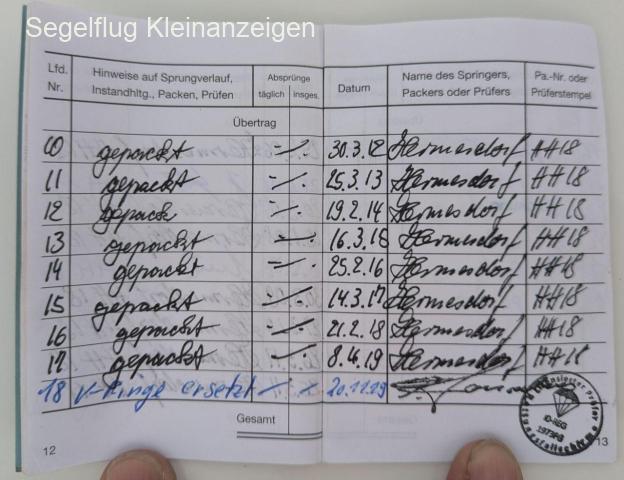 Segelflug Kleinanzeigen
Lfd. Nr. Hinweise auf Sprungverlauf, Instandhltg., Packen, Prüfen Absprünge täglich insges. Datum Name des Springers, Packers oder Prüfers Pa.-Nr. oder Prüferstempel
Übertrag
10 gepackt -/. 30.3.12 Hermesdorf HH18
11 gepackt -/. 25.3.13 Hermesdorf HH18
12 gepack -/. 19.2.14 Hermesdorf HH18
13 gepackt -/. 16.3.15 Hermesdorf HH18
14 gepackt -/. 25.2.16 Hermesdorf HH18
15 gepackt -/. 14.3.17 Hermesdorf HH18
16 gepackt -/. 21.2.18 Hermesdorf HH18
17 gepackt -/. 8.4.19 Hermesdorf HH18
18 V-Ringe ersetzt 20.11.19
Gesamt
12
13